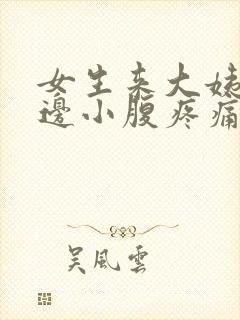 女生来大姨
邊小腹疼痛
吴風雲